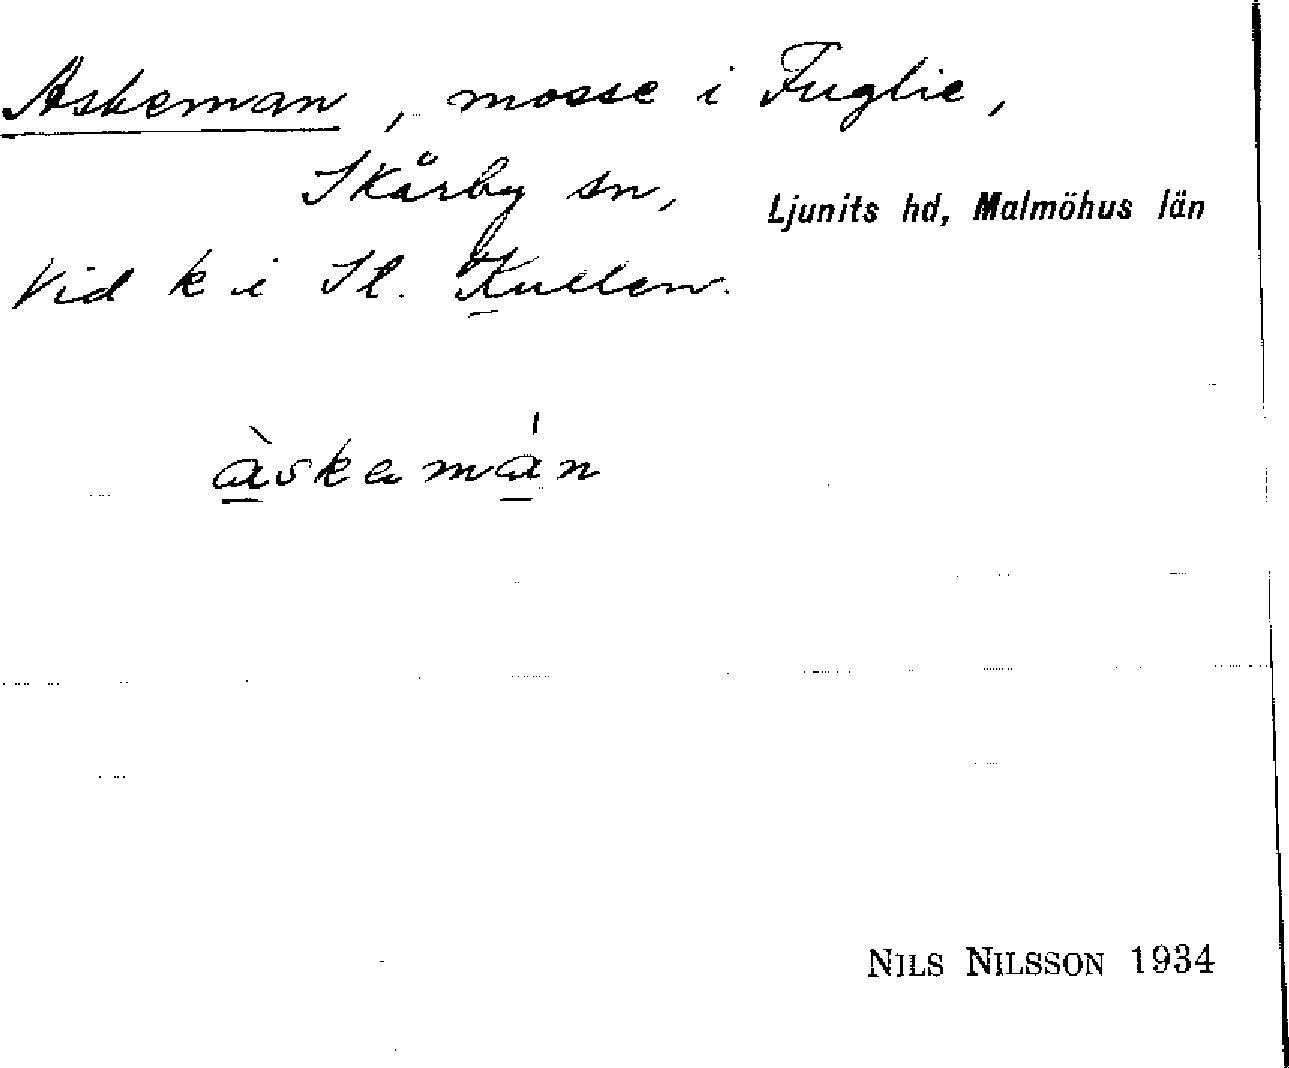 Askeman, mosse i Fuglie,
Skårby sn, Ljunits hd, Malmöhus län
Vid k i St. Kullen.
àskamán
NILS NILSSON 1934